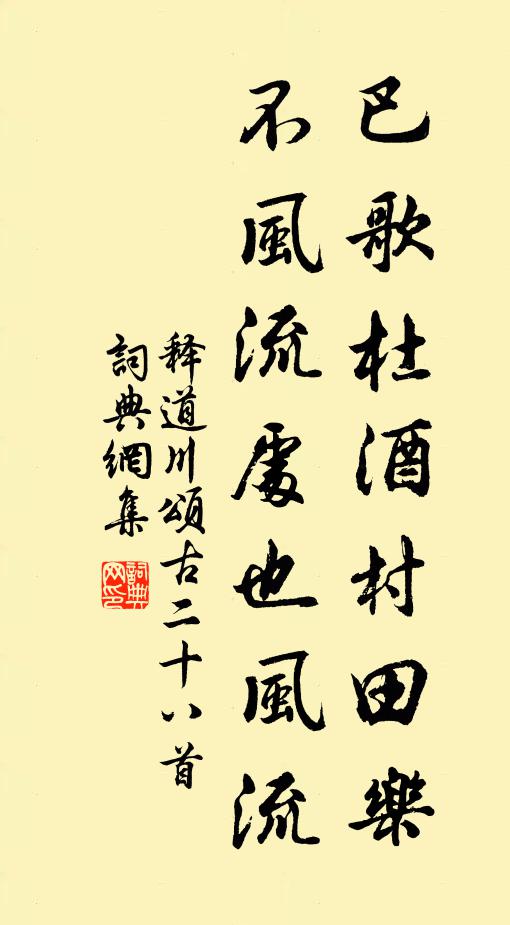 巴歌杜酒村田樂
不風流處也風流
释道川頌古二十八首
詞典網集
詞典網印